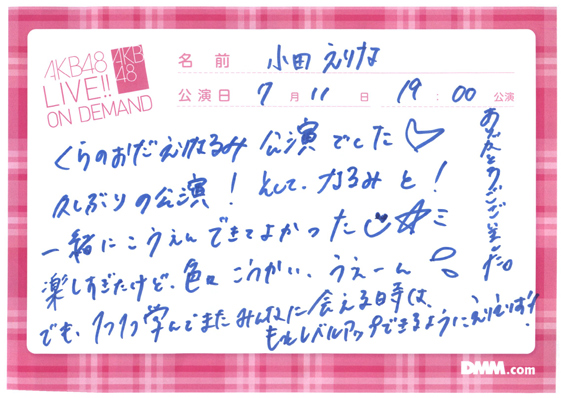 AKB48
LIVE!!
ON DEMAND
AKB
48
名前 小田 えりな
公演日 7月11日 19:00 公演
くらのおだえりなるみ 公演 でした♡
久しぶりの公演! そして、なるみと!
一緒にこうえんできてよかった
楽しすぎたけど、色々 こうかい、うえーん
でも、1つ1つ学んでまたみんなに会える日時は、
もっとレベルアップできるようにえりえりむすび!
ありがとうございました。
DMM.com